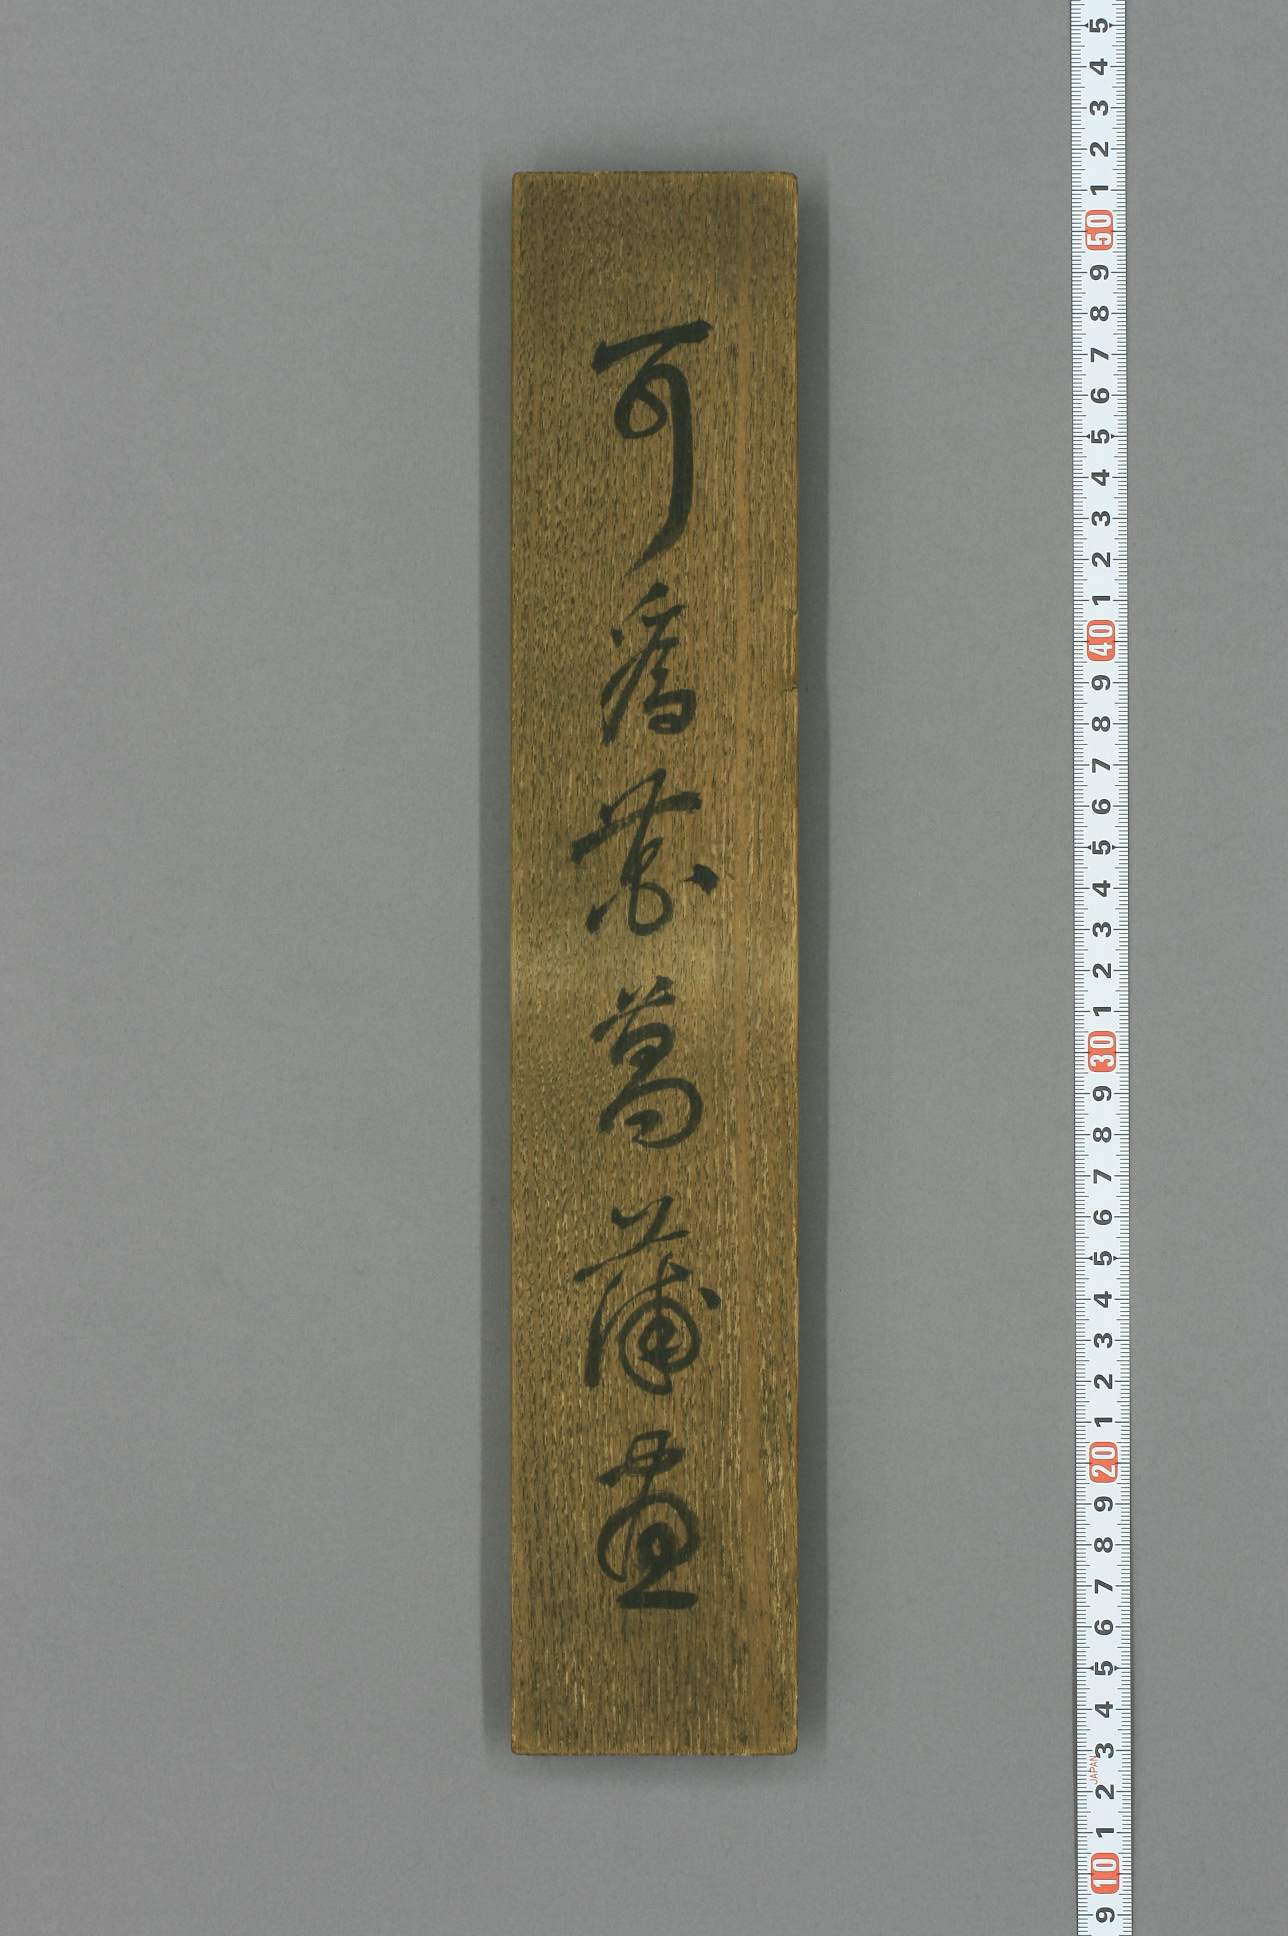 可為筆菖蒲画
5
4
3
2
1
50
9
8
7
6
5
4
3
2
1
40
9
8
7
6
5
4
3
2
1
30
9
8
7
6
5
4
3
2
1
20
9
8
7
6
5
4
3
JAPAN
2
1
10
9